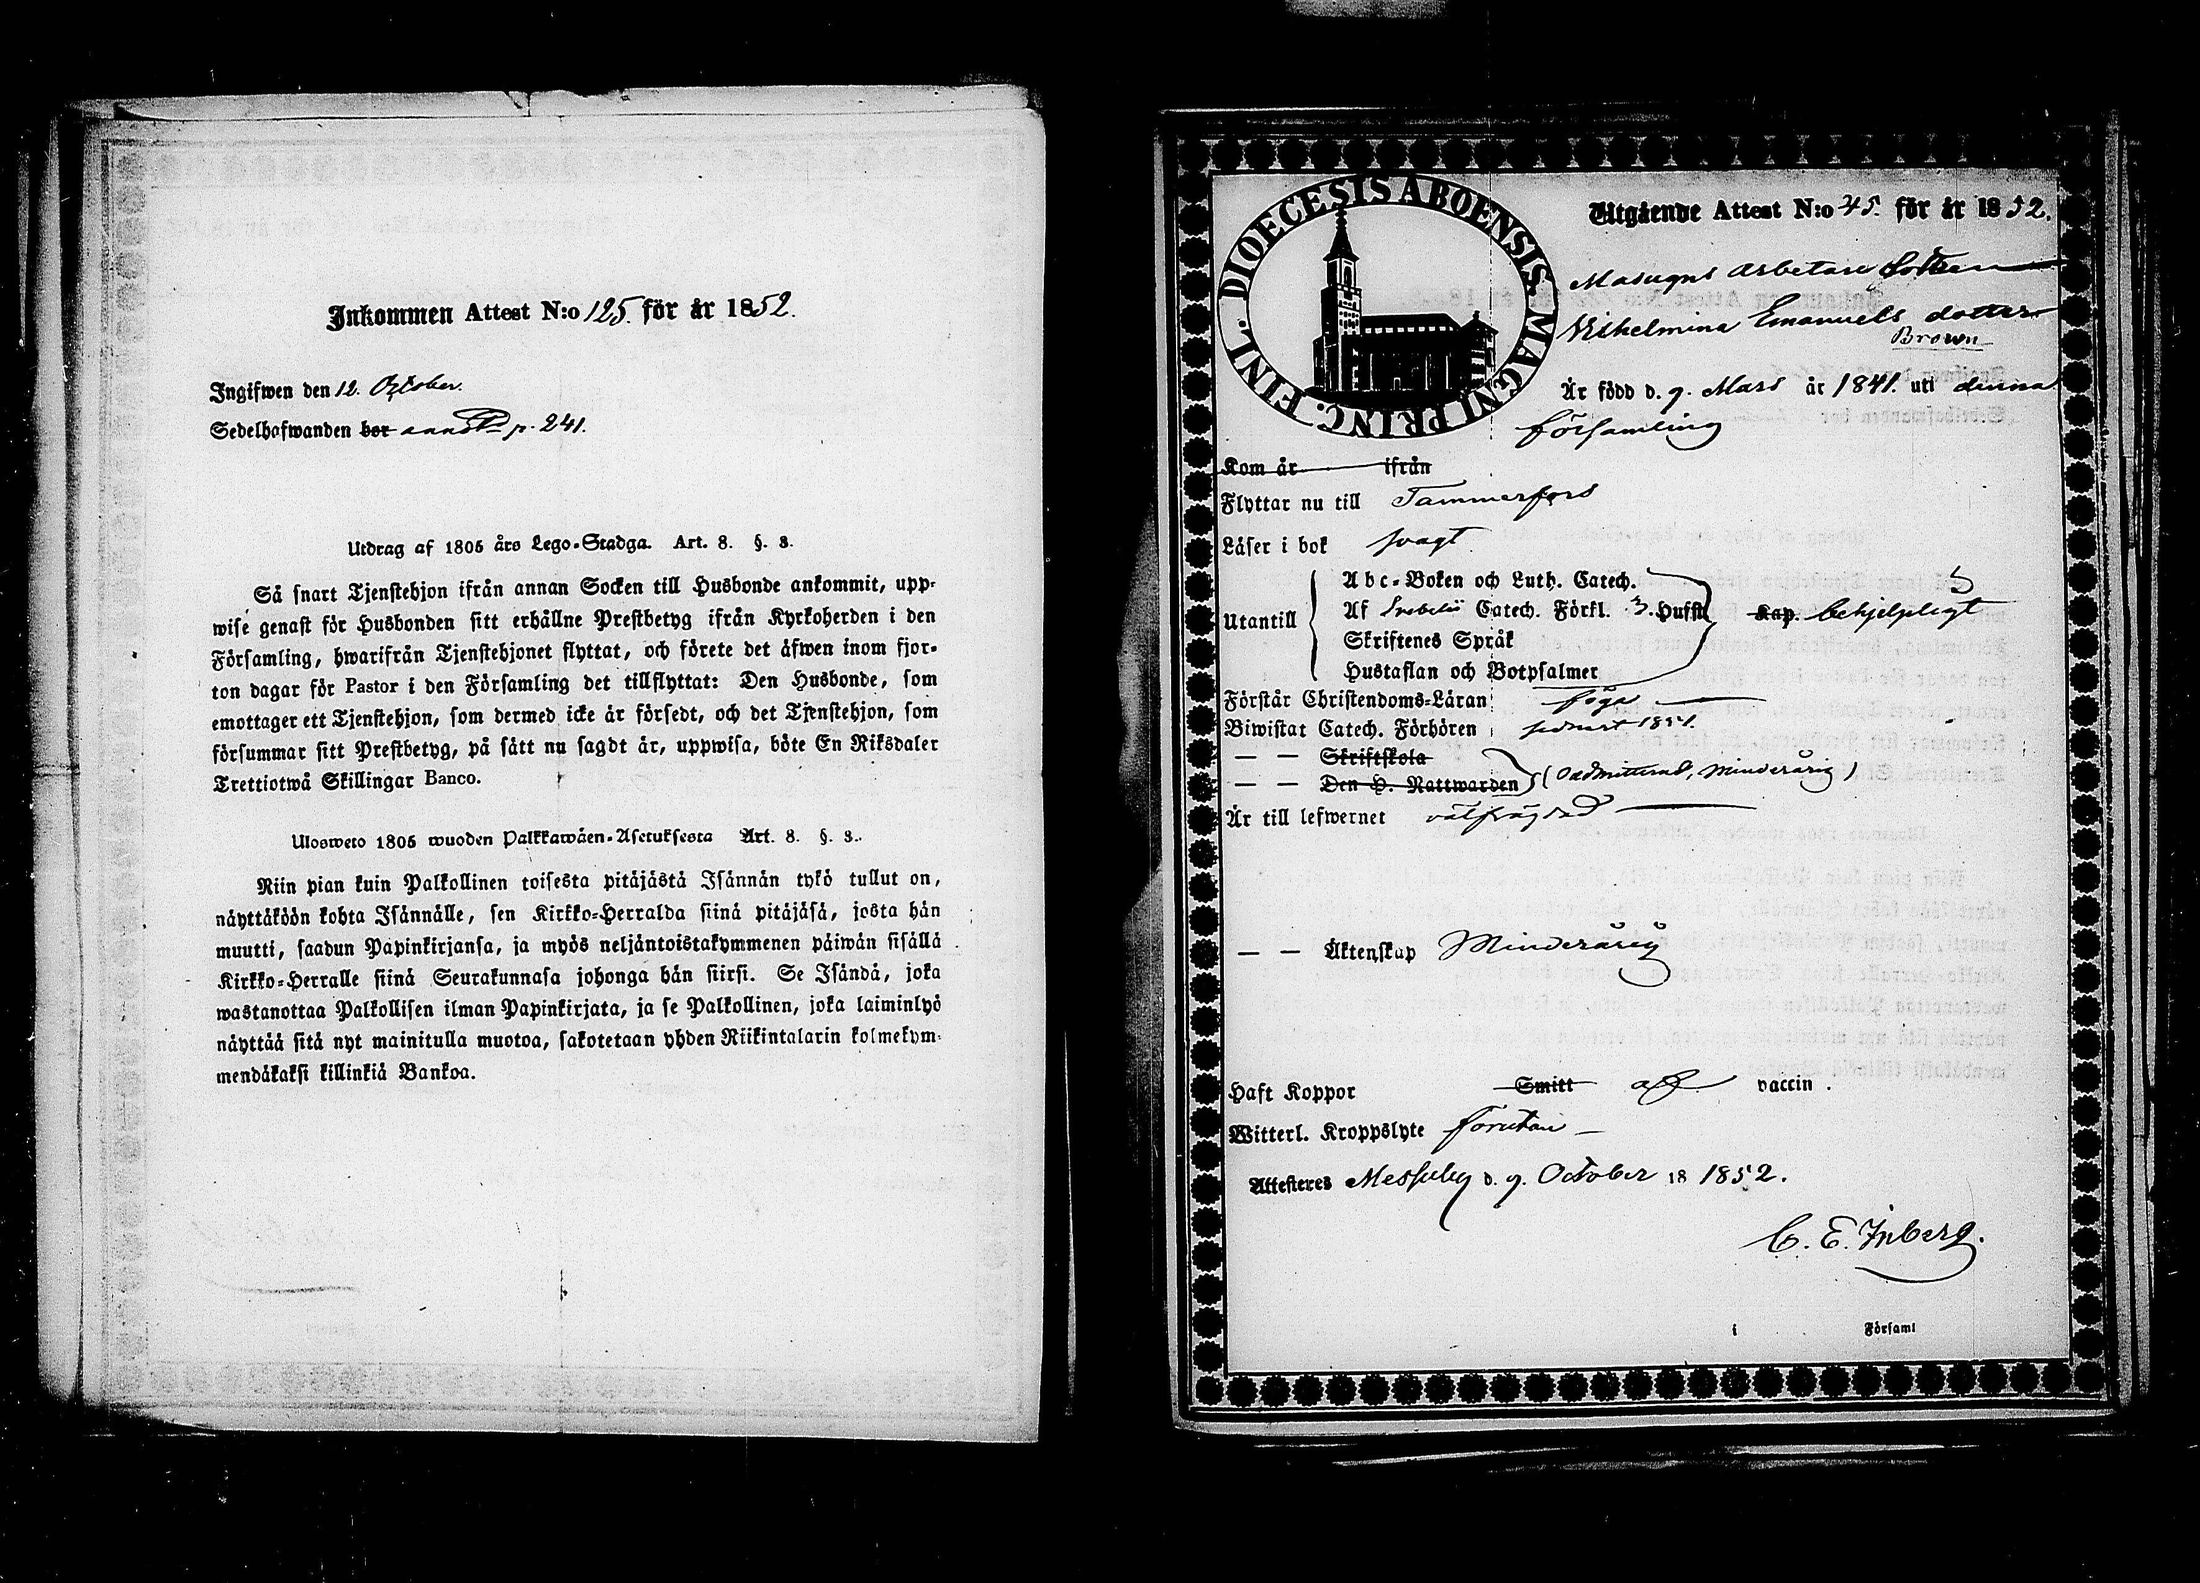 Inkommen Attest N:o 125. för år 1852.
Ingifwen den 12. October.
Sedelhafwanden bor annot p. 241.
Utdrag af 1805 års Lego-Stadga. Art. 8. §. 3.
Så snart Tjenstehjon ifrån annan Socken till Husbonde ankommit, upp-
wise genast för Husbonden sitt erhållne Prestbetyg ifrån Kyrkoherden i den
Församling, hwarifrån Tjenstehjonet flyttat, och förete det äfwen inom fjor-
ton dagar för Pastor i den Församling det tillflyttat: Den Husbonde, som
emottager ett Tjenstehjon, som dermed icke är försedt, och det Tjenstehjon, som
försummar sitt Prestbetyg, på sätt nu sagdt är, uppwisa, böte En Riksdaler
Trettiotwå Skillingar Banco.
Ulosweto 1805 wuoden Palkkawäen-Asetuksesta Art. 8. §. 3.
Niin pian kuin Palkollinen toisesta pitäjästä Isännän tykö tullut on,
näyttäköön kohta Isännälle, sen Kirkko-Herralda siinä pitäjäsä, josta hän
muutti, saadun Papinkirjansa, ja myös neljäntoistakymmenen päiwän sisällä
Kirkko-Herralle siinä Seurakunnasa johonga hän siirsi. Se Isändä, joka
wastanottaa Palkollisen ilman Papinkirjata, ja se Palkollinen, joka laiminlyö
näyttää sitä nyt mainitulla muotoa, sakotetaan yhden Riikintalarin kolmekym-
mendäkaksi killinkiä Bankoa.
DIOECESIS ABOENSIS MAGNI PRINC. FINL.
Utgående Attest N:o 45. för år 1852.
Masugns Arbetare Dottren
Vilhelmina Emanuels dotter
Brown
Är född d. 9. Mars år 1841. uti denna
församling
Kom år ifrån
Flyttar nu till Tammerfors
Läser i bok svagt.
Utantill
Abc-Boken och Luth. Catech.
Af Svebelii Catech. Förkl. 3. Hufst. Kap. behjelpligt
Skriftenes Språk
Hustaflan och Botpsalmer
Förstår Christendoms-Läran föga
Biwistat Catech. Förhören sednast 1851.
— — Skriftskola
— — Den H. Nattwarden (Oadmitterad, minderårig)
Är till lefwernet välfrägdad
— — Äktenskap Minderårig
Haft Koppor Smitt af vaccin.
Witterl. Kroppslyte förutan
Attesteres Messuby d. 9. October 18 1852.
C. E. Inberg.
i Församl